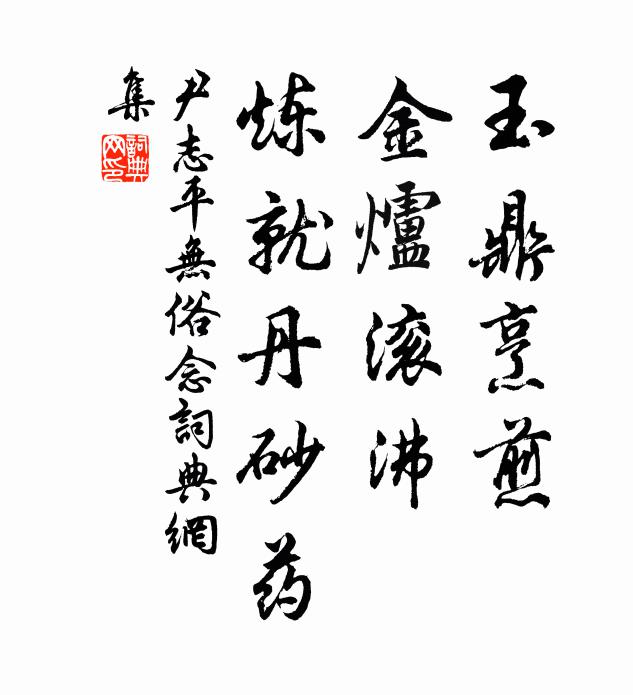 玉鼎烹煎
金爐滚沸
炼就丹砂药
尹志平無俗念詞典網
集
詞典網印